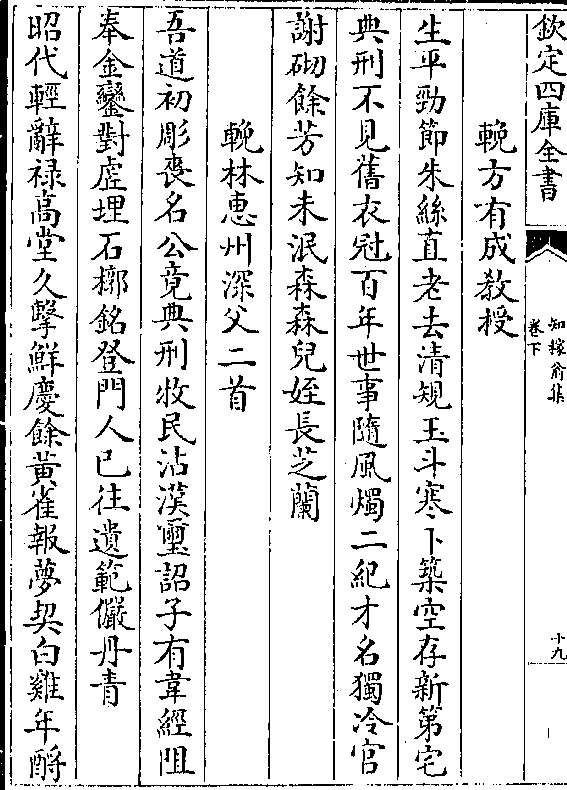 欽定四庫全書
知稼翁集
卷下
十九
輓方有成教授
生平勁節朱絲直老去清規玉斗寒卜築空存新第宅
典刑不見舊衣冠百年世事隨風燭二紀才名獨冷官
謝砌餘芳知未泯森森兒姪長芝蘭
輓林惠州深父二首
吾道初彫喪名公竟典刑牧民沾漢璽詔子有韋經阻
奉金鑾對虛埋石槨銘登門人已往遺範儼丹青
昭代輕辭禄髙堂久擊鮮慶餘黄雀報夢契白雞年酹